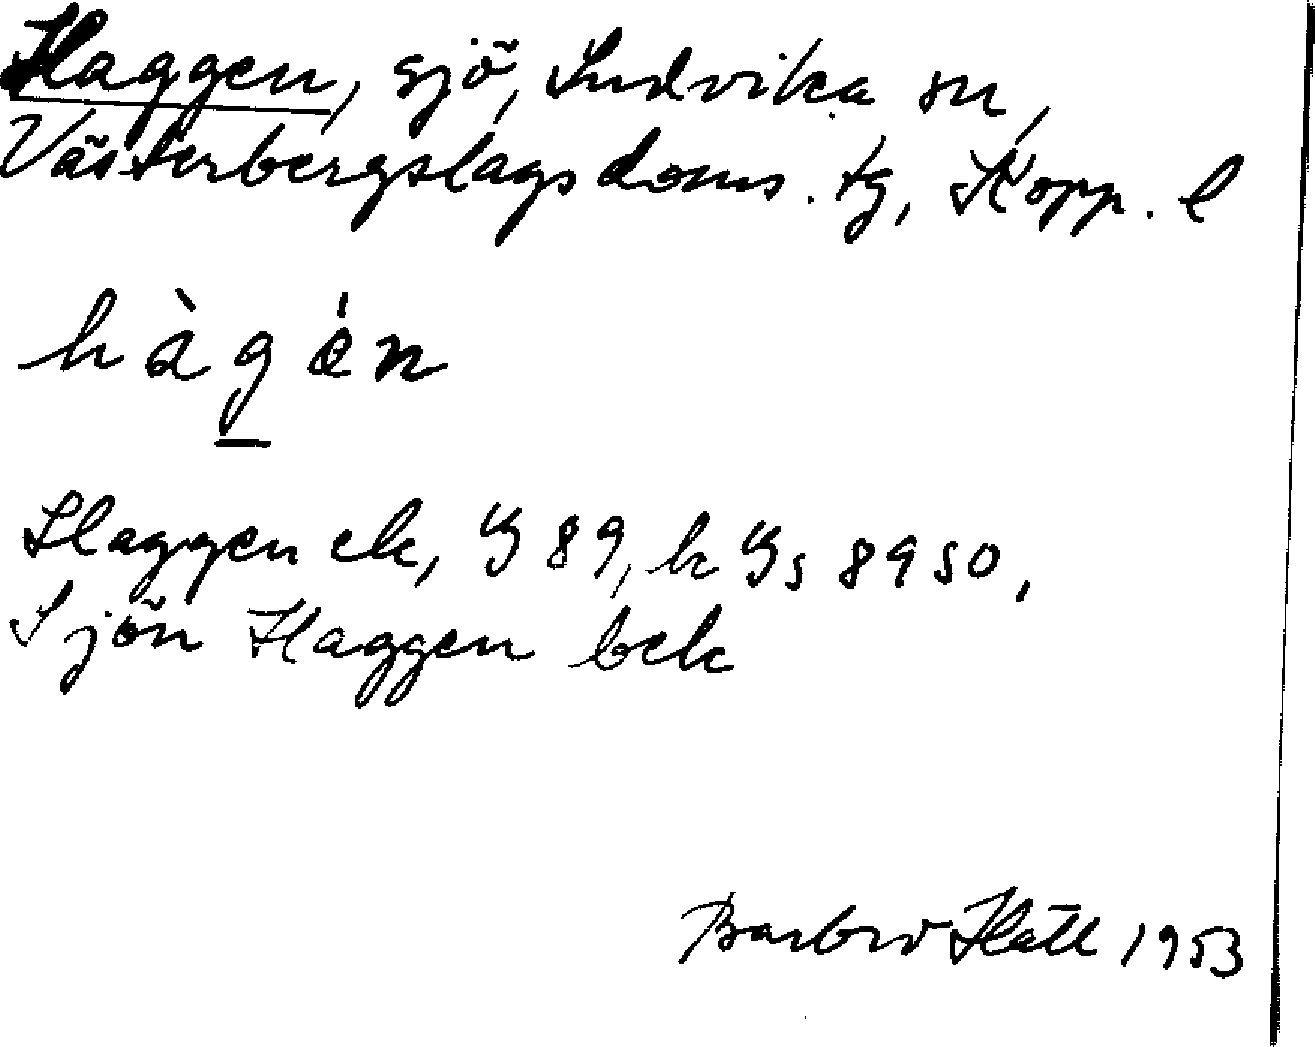 Haggen, sjö, Ludvika sn,
Västerbergslags doms. tg, Kopp. l
hàgėn
Haggen ek, 89, k 8950,
Sjön Haggen bek
Barbro 1953